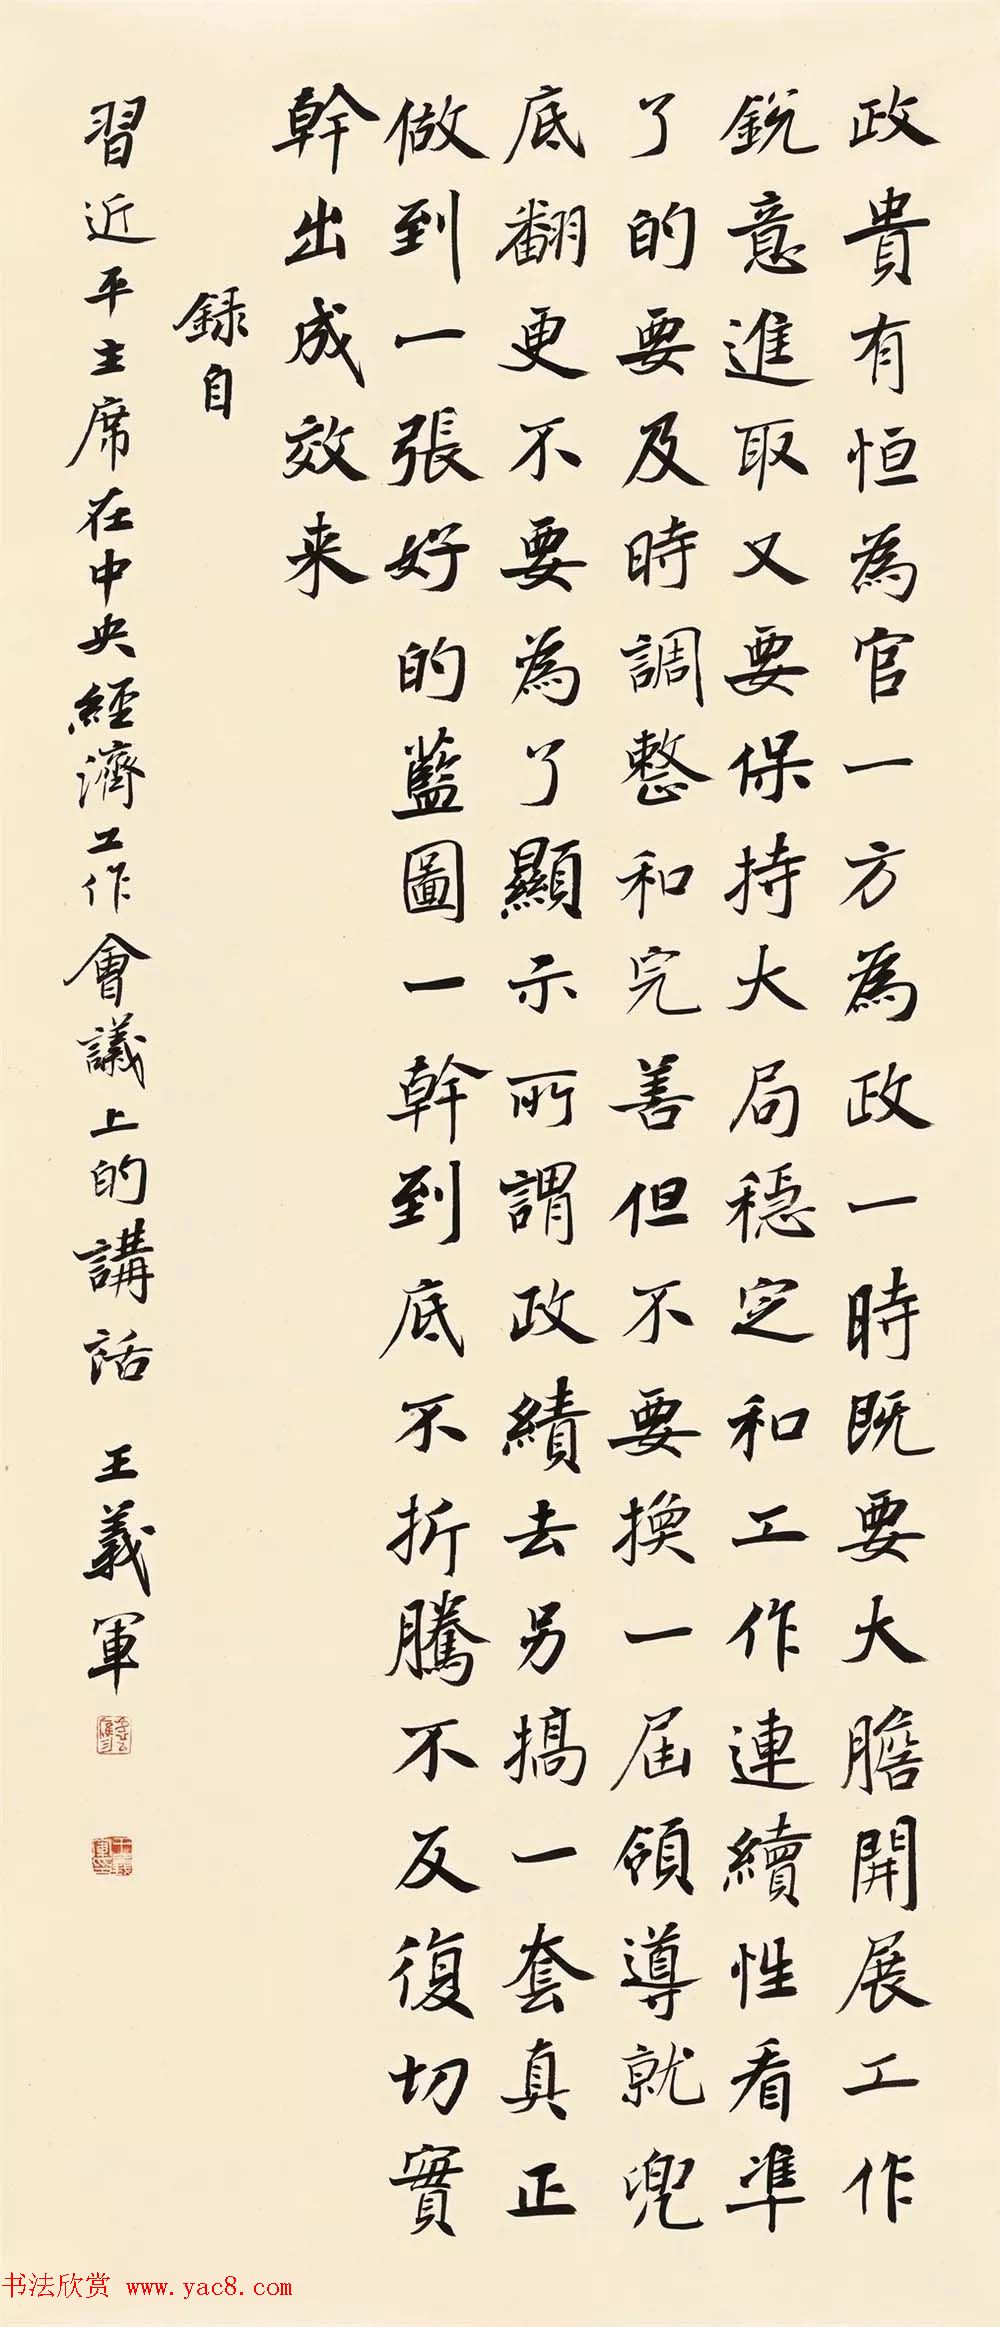 政貴有恒為官一方為政一時既要大膽開展工作
銳意進取又要保持大局穩定和工作連續性看準
了的要及時調整和完善但不要換一屆領導就兜
底翻更不要為了顯示所謂政績去另搞一套真正
做到一張好的藍圖一幹到底不折騰不反復切實
幹出成效来
録自
習近平主席在中央經濟工作會議上的講話 王義軍
书法欣赏 www.yac8.com